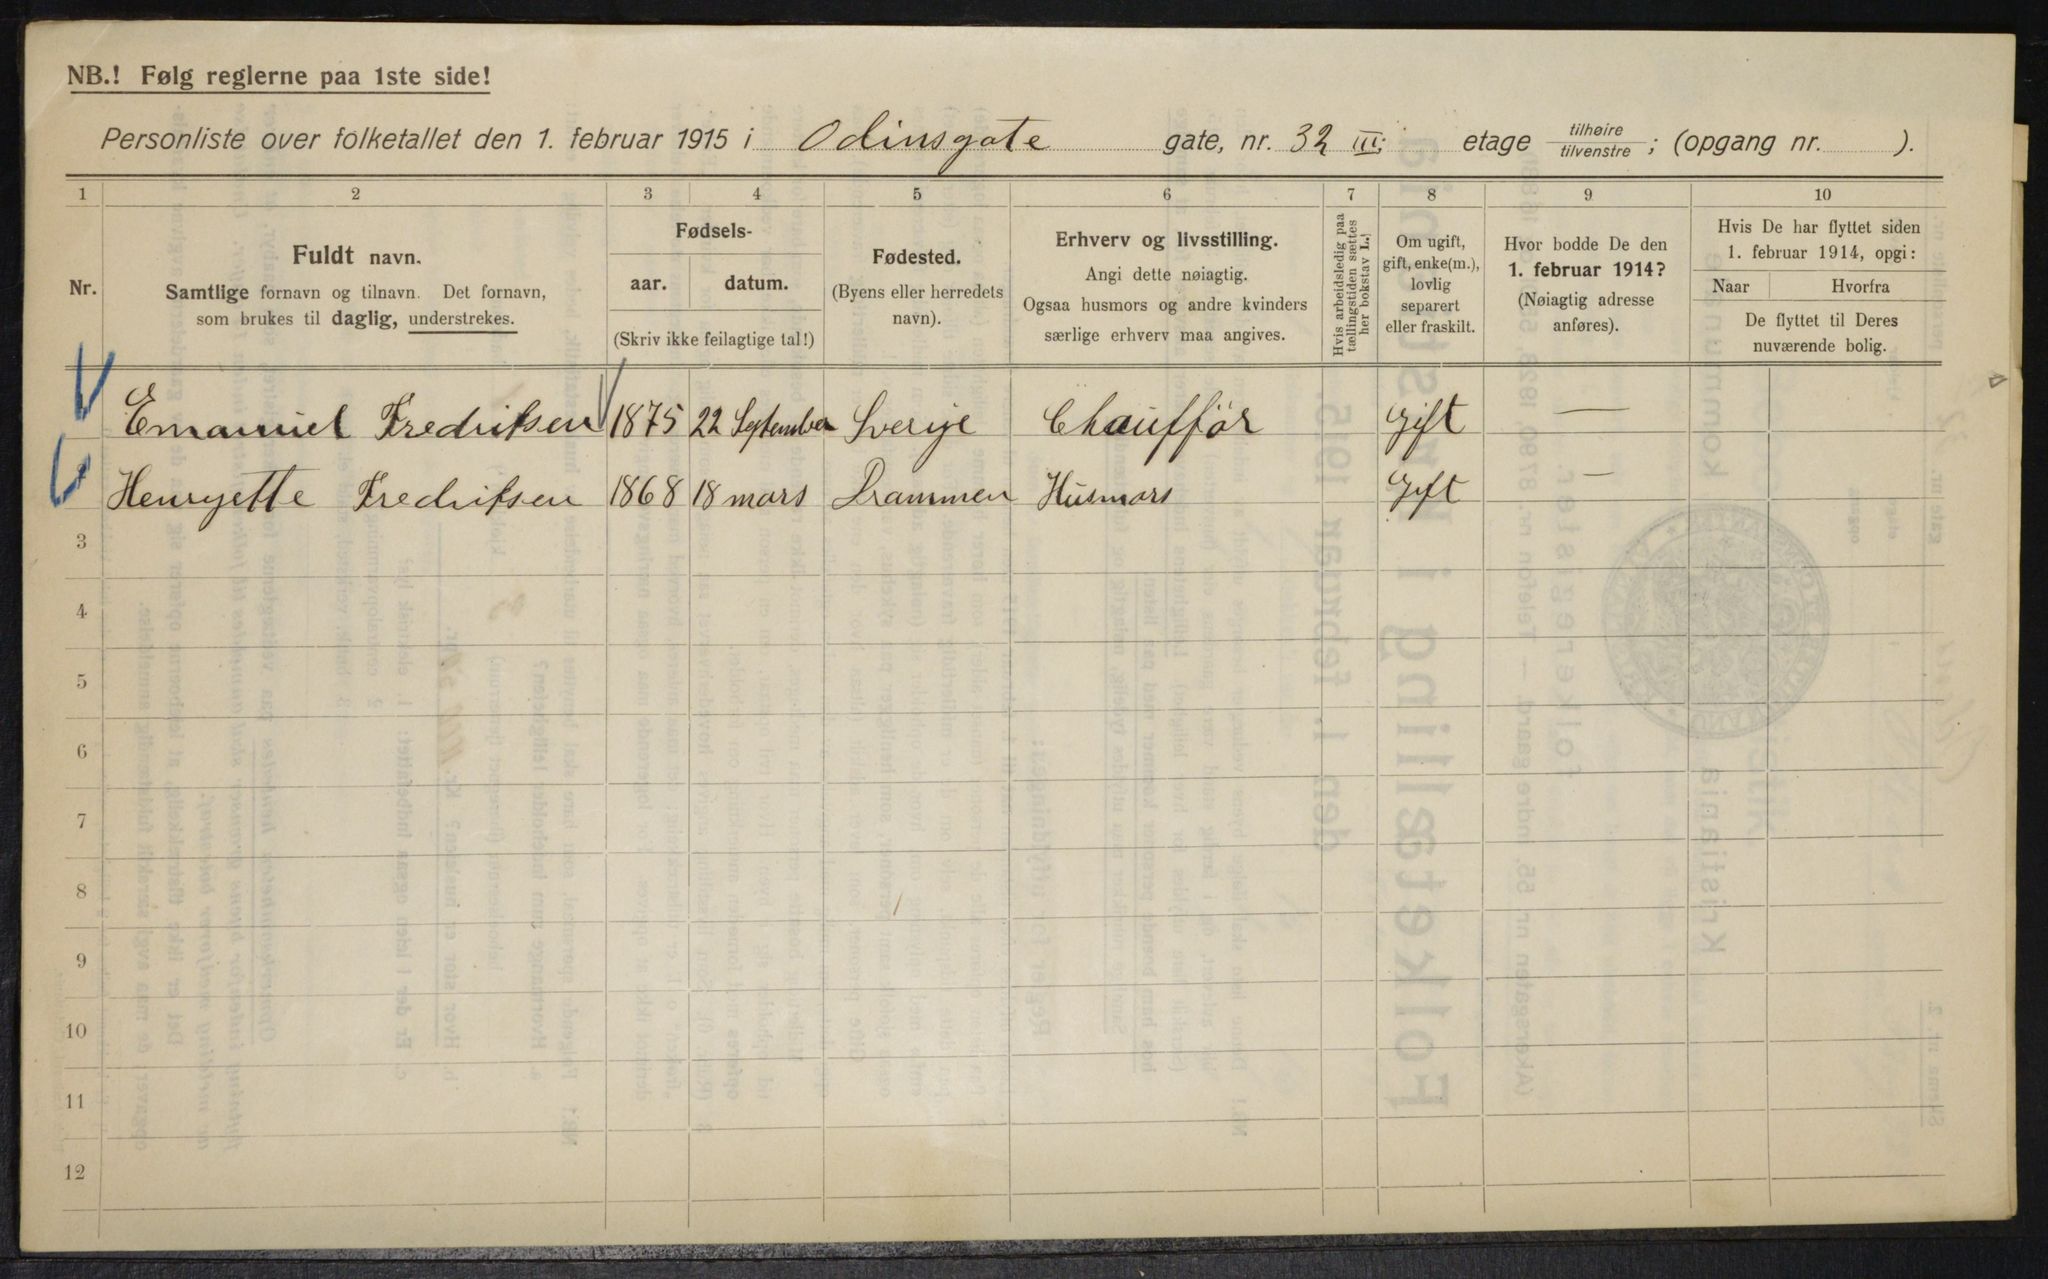 NB.! Følg reglerne paa 1ste side!
Personliste over folketallet den 1. februar 1915 i Odinsgate gate, nr. 32 III; etage tilhøire/tilvenstre; (opgang nr. ).
1 2 3 4 5 6 7 8 9 10
Nr.
Fuldt navn.
Samtlige fornavn og tilnavn. Det fornavn,
som brukes til daglig, understrekes.
Fødsels-
aar. datum.
(Skriv ikke feilagtige tal!)
Fødested.
(Byens eller herredets
navn).
Erhverv og livsstilling.
Angi dette nøiagtig.
Ogsaa husmors og andre kvinders
særlige erhverv maa angives.
Hvis arbeidsledig paa
tællingstiden sættes
her bokstav L.
Om ugift,
gift, enke(m.),
lovlig
separert
eller fraskilt.
Hvor bodde De den
1. februar 1914?
(Nøiagtig adresse
anføres).
Hvis De har flyttet siden
1. februar 1914, opgi:
Naar Hvorfra
De flyttet til Deres
nuværende bolig.
Emanuel Fredriksen 1875 22 September Sverige Chauffør Gift —
Henryette Fredriksen 1868 18 mars Drammen Husmors Gift —
3
4
5
6
7
8
9
10
11
12